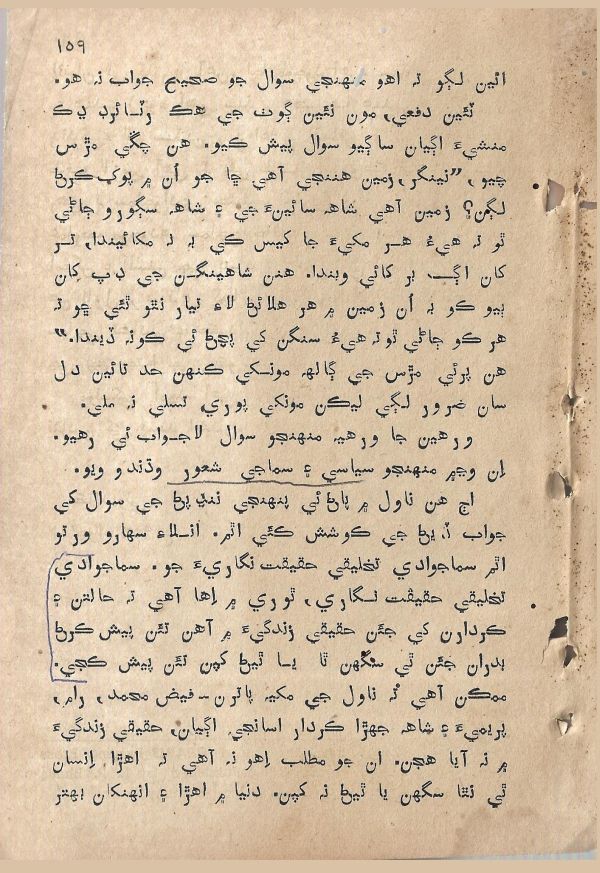 ١٥٩
ائين لڳو تہ اهو منهنجي سوال جو صحيح جواب نہ هو.
ٽئين دفعي، مون ٽئين ڳوٺ جي هڪ رٽائرڊ ڊڪ
منشيءَ اڳيان ساڳيو سوال پيش ڪيو. هن چڱي مڙس
چيو، ”نينگر، زمين هننجي آهي ڇا جو اُن ۾ پوک ڪرڻ
لڳن؟ زمين آهي شاهہ سائينءَ جي ۽ شاهہ سڳورو ڄاڻي
ٿو تہ هيءُ هر مکيءَ جا ڪيس کي بہ نہ مکائيندا، تر
کان اڳ بر کائي ويندا. هنن شاهينگن جي ڊپ کان
ٻيو ڪو بہ اُن زمين ۾ هر هلائڻ لاءِ تيار نٿو ٿئي ڇو تہ
هر ڪو ڄاڻي ٿو تہ هيءُ سنگن کي پچڻ ئي ڪونہ ڏيندا.“
هن پرڻي مڙس جي ڳالهہ مونکي ڪنهن حد تائين دل
سان ضرور لڳي ليڪن مونکي پوري تسلي نہ ملي.
ورهين جا ورهيہ منهنجو سوال لاجواب ئي رهيو.
اِن وچ۾ منهنجو سياسي ۽ سماجي شعور وڌندو ويو.
اڄ هن ناول ۾ پاڻ ئي پنهنجي ننڍپڻ جي سوال کي
جواب ڏيڻ جي ڪوشش ڪئي اٿم. انلاءِ سهارو ورتو
اٿم سماجوادي تخليقي حقيقت نگاريءَ جو. سماجوادي
تخليقي حقيقت نگاري، ٿوري ۾ اِها آهي تہ حالتن ۽
ڪردارن کي جيئن حقيقي زندگيءَ ۾ آهن تيئن پيش ڪرڻ
بدران جيئن ٿي سگهن ٿا يا ٿيڻ کپن تيئن پيش ڪجي.
ممڪن آهي تہ ناول جي مکيہ پاترن-فيض محمد، رام،
پريميءَ ۽ شاهہ جهڙا ڪردار اسانجي اڳيان، حقيقي زندگيءَ
۾ نہ آيا هجن. ان جو مطلب اِهو نہ آهي تہ اهڙا اِنسان
ٿي نٿا سگهن يا ٿيڻ نہ کپن. دنيا ۾ اهڙا ۽ انهنکان بهتر